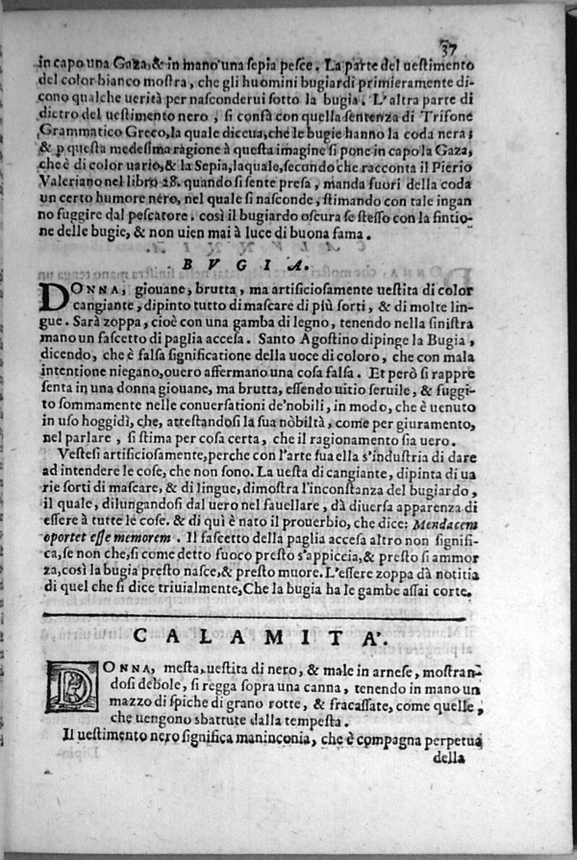 37
in capo una Gaza, & in mano una sepia pesce. La parte del uestimento
del color bianco mostra, che gli huomini bugiardi primieramente di-
cono qualche uerità per nasconderui sotto la bugia. L'altra parte di
dietro del uestimento nero, si confà con quella sentenza di Trifone
Grammatico Greco, la quale diceua, che le bugie hanno la coda nera;
& p questa medesima ragione à questa imagine si pone in capo la Gaza,
che è di color uario, & la Sepia, laquale, secondo che racconta il Pierio
Valeriano nel libro 28. quando si sente presa, manda fuori della coda
un certo humore nero, nel quale si nasconde, stimando con tale ingan
no fuggire dal pescatore. così il bugiardo oscura se stesso con la fintio-
ne delle bugie, & non uien mai à luce di buona fama.
BVGIA.
DONNA, giouane, brutta, ma artificiosamente uestita di color
cangiante, dipinto tutto di mascare di più sorti, & di molte lin-
gue. Sarà zoppa, cioè con una gamba di legno, tenendo nella sinistra
mano un fascetto di paglia accesa. Santo Agostino dipinge la Bugia,
dicendo, che è falsa significatione della uoce di coloro, che con mala
intentione niegano, ouero affermano una cosa falsa. Et però si rappre
senta in una donna giouane, ma brutta, essendo uitio seruile, & fuggi-
to sommamente nelle conuersationi de'nobili, in modo, che è uenuto
in uso hoggidì, che, attestandosi la sua nobiltà, come per giuramento,
nel parlare, si stima per cosa certa, che il ragionamento sia uero.
Vestesi artificiosamente, perche con l'arte sua ella s'industria di dare
ad intendere le cose, che non sono. La uesta di cangiante, dipinta di ua
rie sorti di mascare, & di lingue, dimostra l'inconstanza del bugiardo,
il quale, dilungandosi dal uero nel fauellare, dà diuersa apparenza di
essere à tutte le cose. & di quì è nato il prouerbio, che dice: Mendacem
oportet esse memorem. Il fascetto della paglia accesa altro non signifi-
ca, se non che, si come detto fuoco presto s'appiccia, & presto si ammor
za, così la bugia presto nasce, & presto muore. L'essere zoppa dà notitia
di quel che si dice triuialmente, Che la bugia ha le gambe assai corte.
CALAMITA'.
DONNA, mesta, uestita di nero, & male in arnese, mostran-
dosi debole, si regga sopra una canna, tenendo in mano un
mazzo di spiche di grano rotte, & fracassate, come quelle,
che uengono sbattute dalla tempesta.
Il uestimento nero significa maninconia, che è compagna perpetua
della